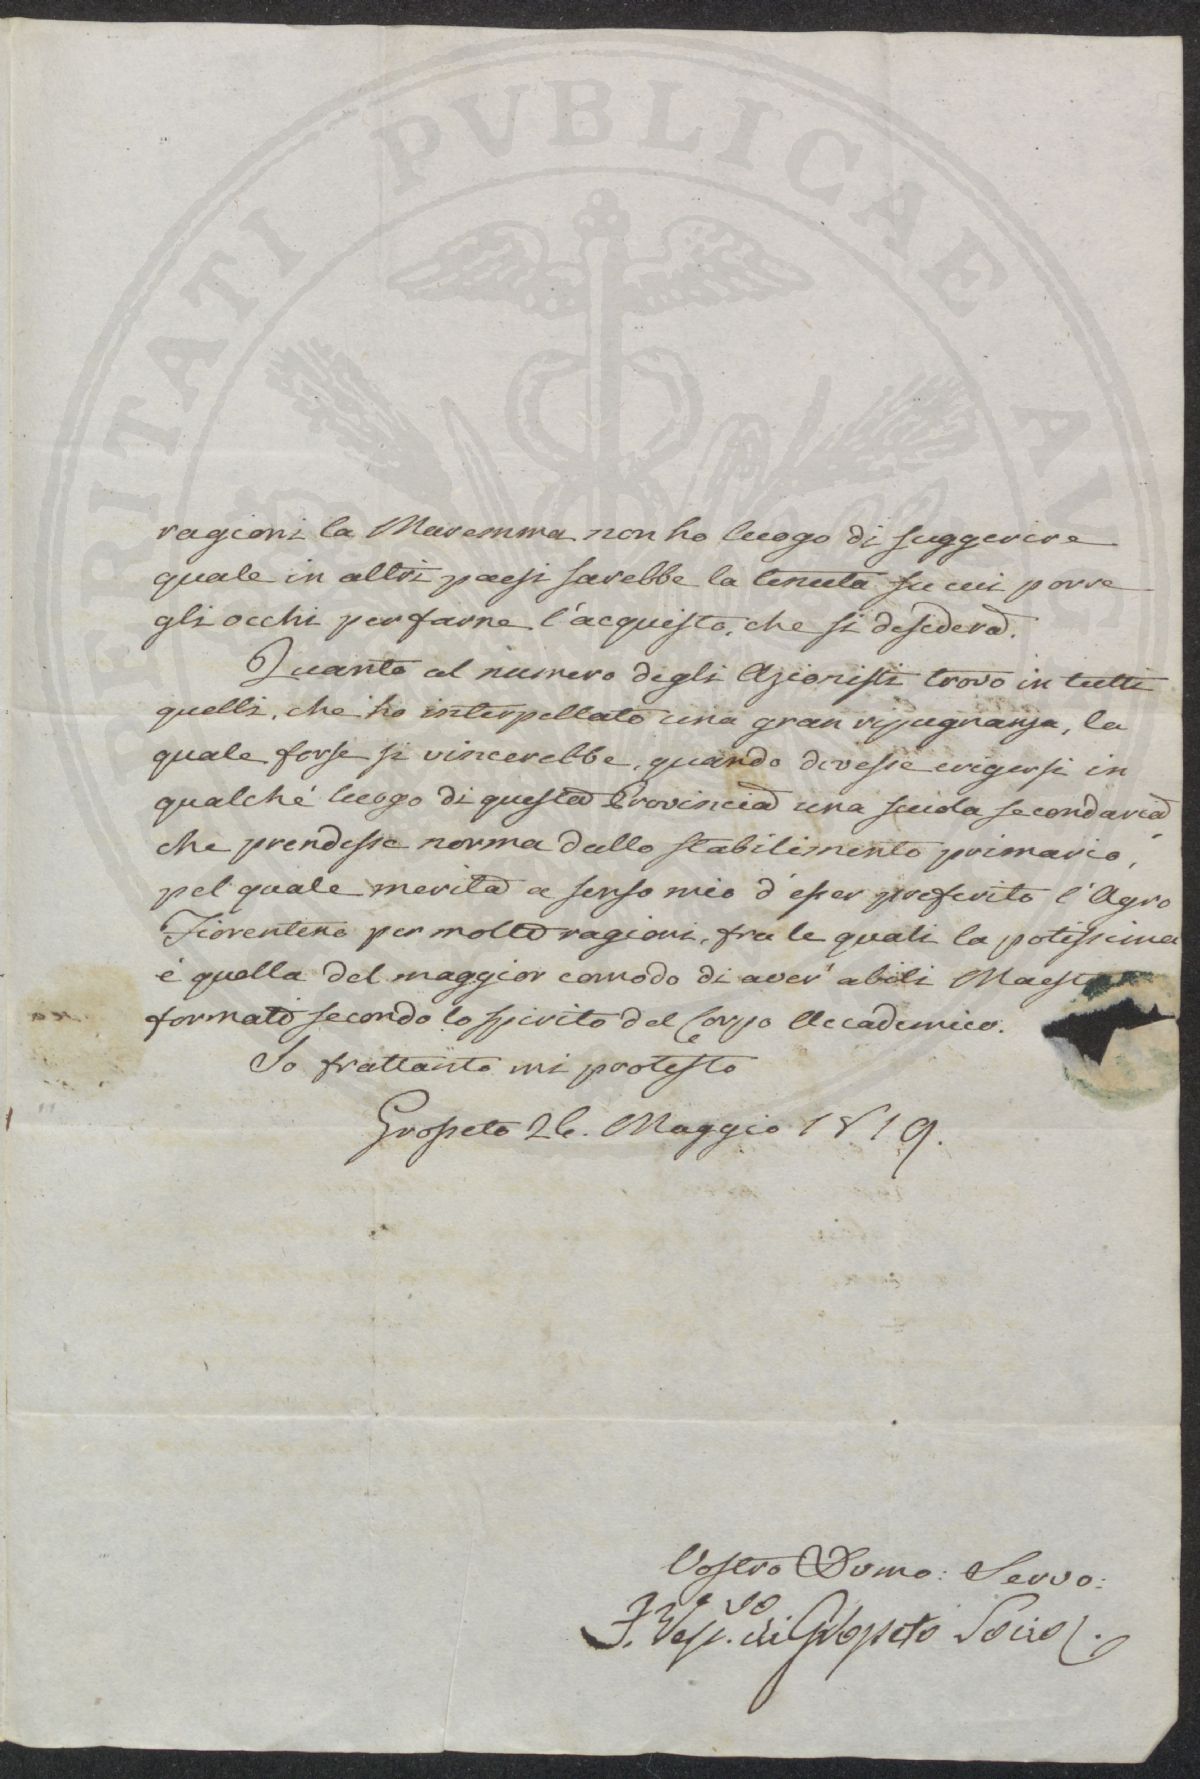 PROSPERITATI PVBLICAE AVGENDAE
ragioni la Maremma non ho luogo di suggerire
quale in altri paesi sarebbe la tenuta su cui porre
gli occhi per farne l'acquisto, che si desidera.
Quanto al numero degli Azionisti trovo in tutti
quelli, che ho interpellato una gran ripugnanza, la
quale forse si vincerebbe, quando dovesse erigersi in
qualche luogo di questa Provincia una scuola secondaria,
che prendesse norma dallo stabilimento primario,
pel quale merita a senso mio d'esser preferito l'Agro
Fiorentino per molte ragioni, fra le quali la potissima
è quella del maggior comodo di aver abili Maestri
formati secondo lo spirito del Corpo Accademico.
Io frattanto mi protesto
Grosseto 26. Maggio 1819.
Vostro Devmo: Servo:
F. Vesc.vo di Grosseto Socio